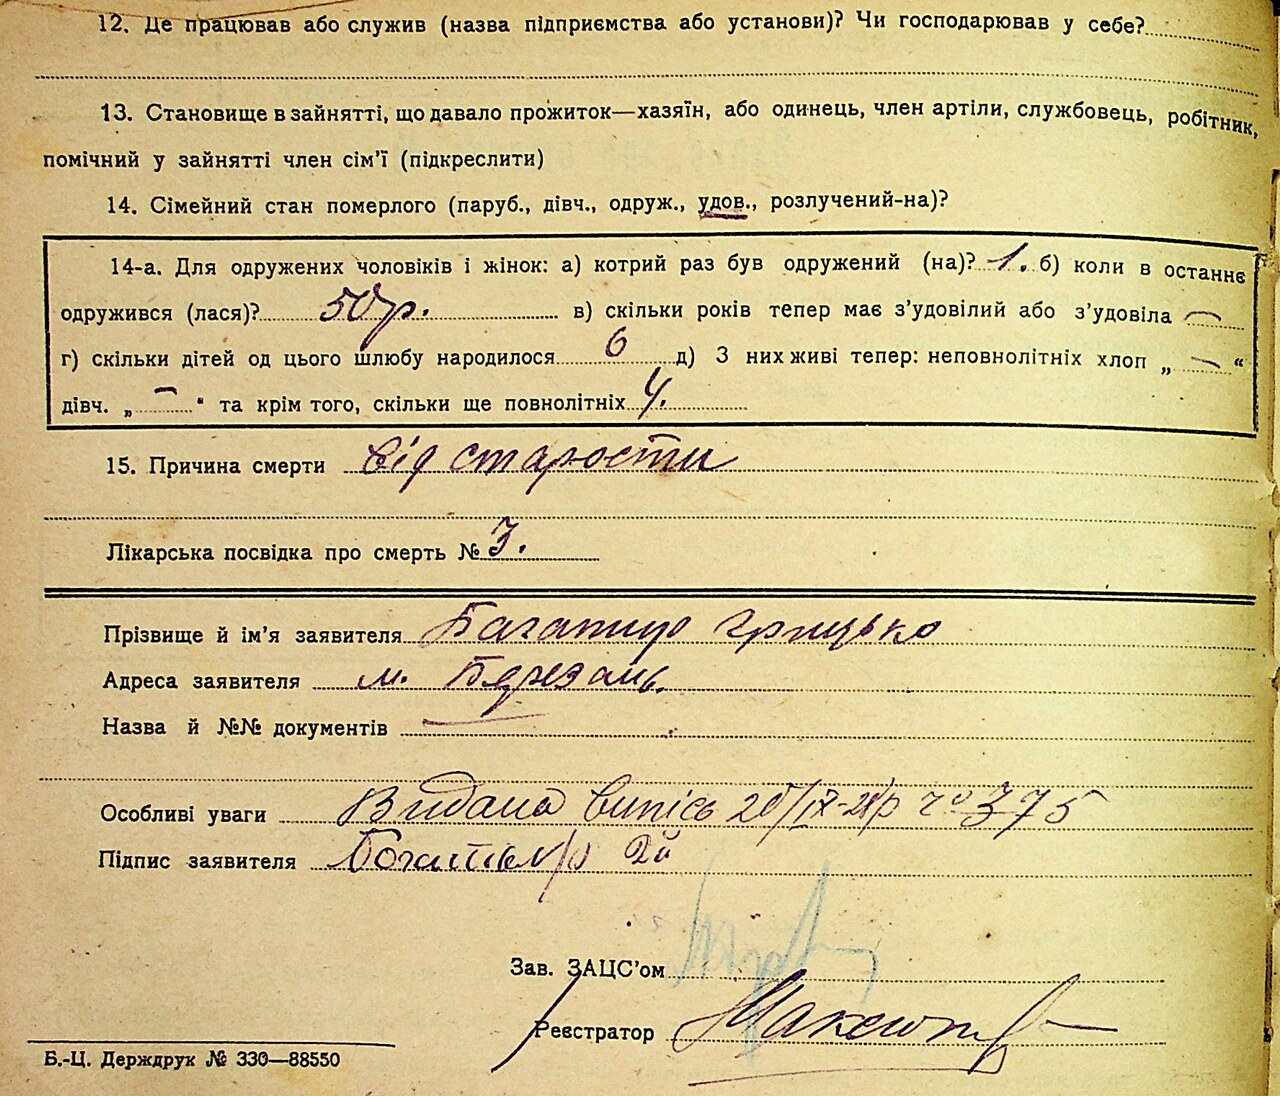 12. Де працював або служив (назва підприємства або установи)? Чи господарював у себе?
13. Становище в зайнятті, що давало прожиток—хазяїн, або одинець, член артіли, службовець, робітник,
помічний у зайнятті член сім'ї (підкреслити)
14. Сімейний стан померлого (паруб., дівч., одруж., удов., розлучений-на)?
14-а. Для одружених чоловіків і жінок: а) котрий раз був одружений (на)? 1. б) коли в останнє
одружився (лася)? 50 р. в) скільки років тепер має з'удовілий або з'удовіла —
г) скільки дітей од цього шлюбу народилося 6 д) З них живі тепер: неповнолітніх хлоп „ — "
дівч. „ — " та крім того, скільки ще повнолітніх 4.
15. Причина смерти від старости
Лікарська посвідка про смерть № 3.
Прізвище й ім'я заявителя Багатир Грицько
Адреса заявителя м. Березань.
Назва й №№ документів —
Особливі уваги Видана випись 20/IX-28 р 375
Підпис заявителя
Зав. ЗАЦС'ом
Реєстратор
Б.-Ц. Держдрук № 330—88550